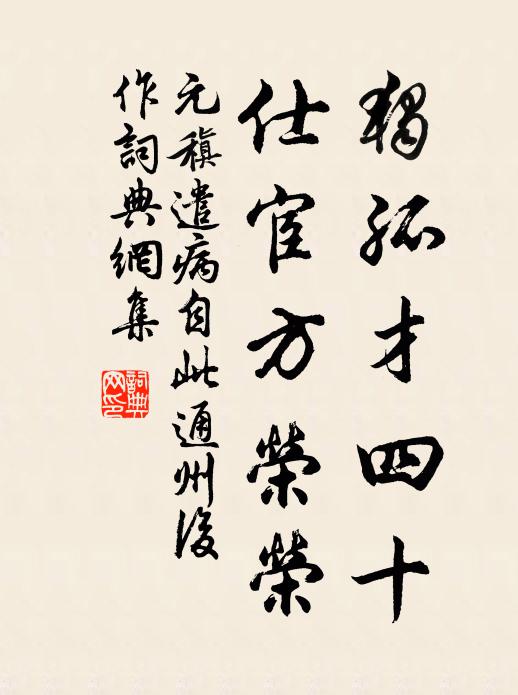 獨孤才四十
仕宦方榮榮
元稹遣病自此通州後
作詞典網集
詞典
网印